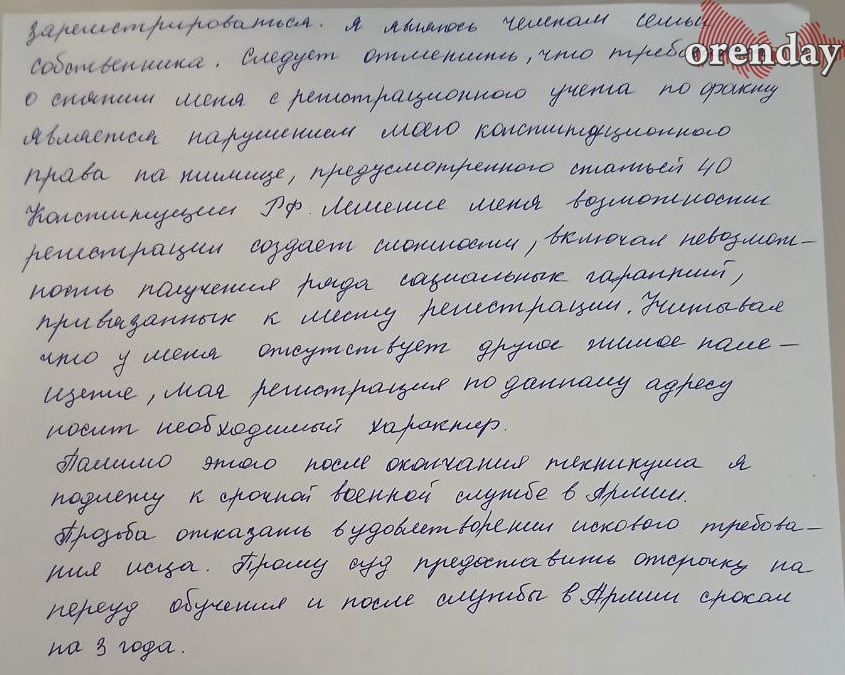 зарегистрироваться. Я являюсь членом семьи
orenday
собственника. Следует отметить, что
о снятии меня с регистрационного учета по факту
является нарушением моего конституционного
права на жилище, предусмотренного статьей 40
Конституции РФ. Лишение меня возможности
регистрации создает сложности, включая невозмож-
ность получения ряда социальных гарантий,
привязанных к месту регистрации. Учитывая
что у меня отсутствует другое жилое поме-
щение, моя регистрация по данному адресу
носит необходимый характер.
Помимо этого после окончания техникума я
подлежу к срочной военной службе в Армии.
Прозьба отказать в удовлетворении искового требова-
ния исца. Прошу суд предоставить отсрочку на
переуд обучения и после службы в Армии сроком
на 3 года.